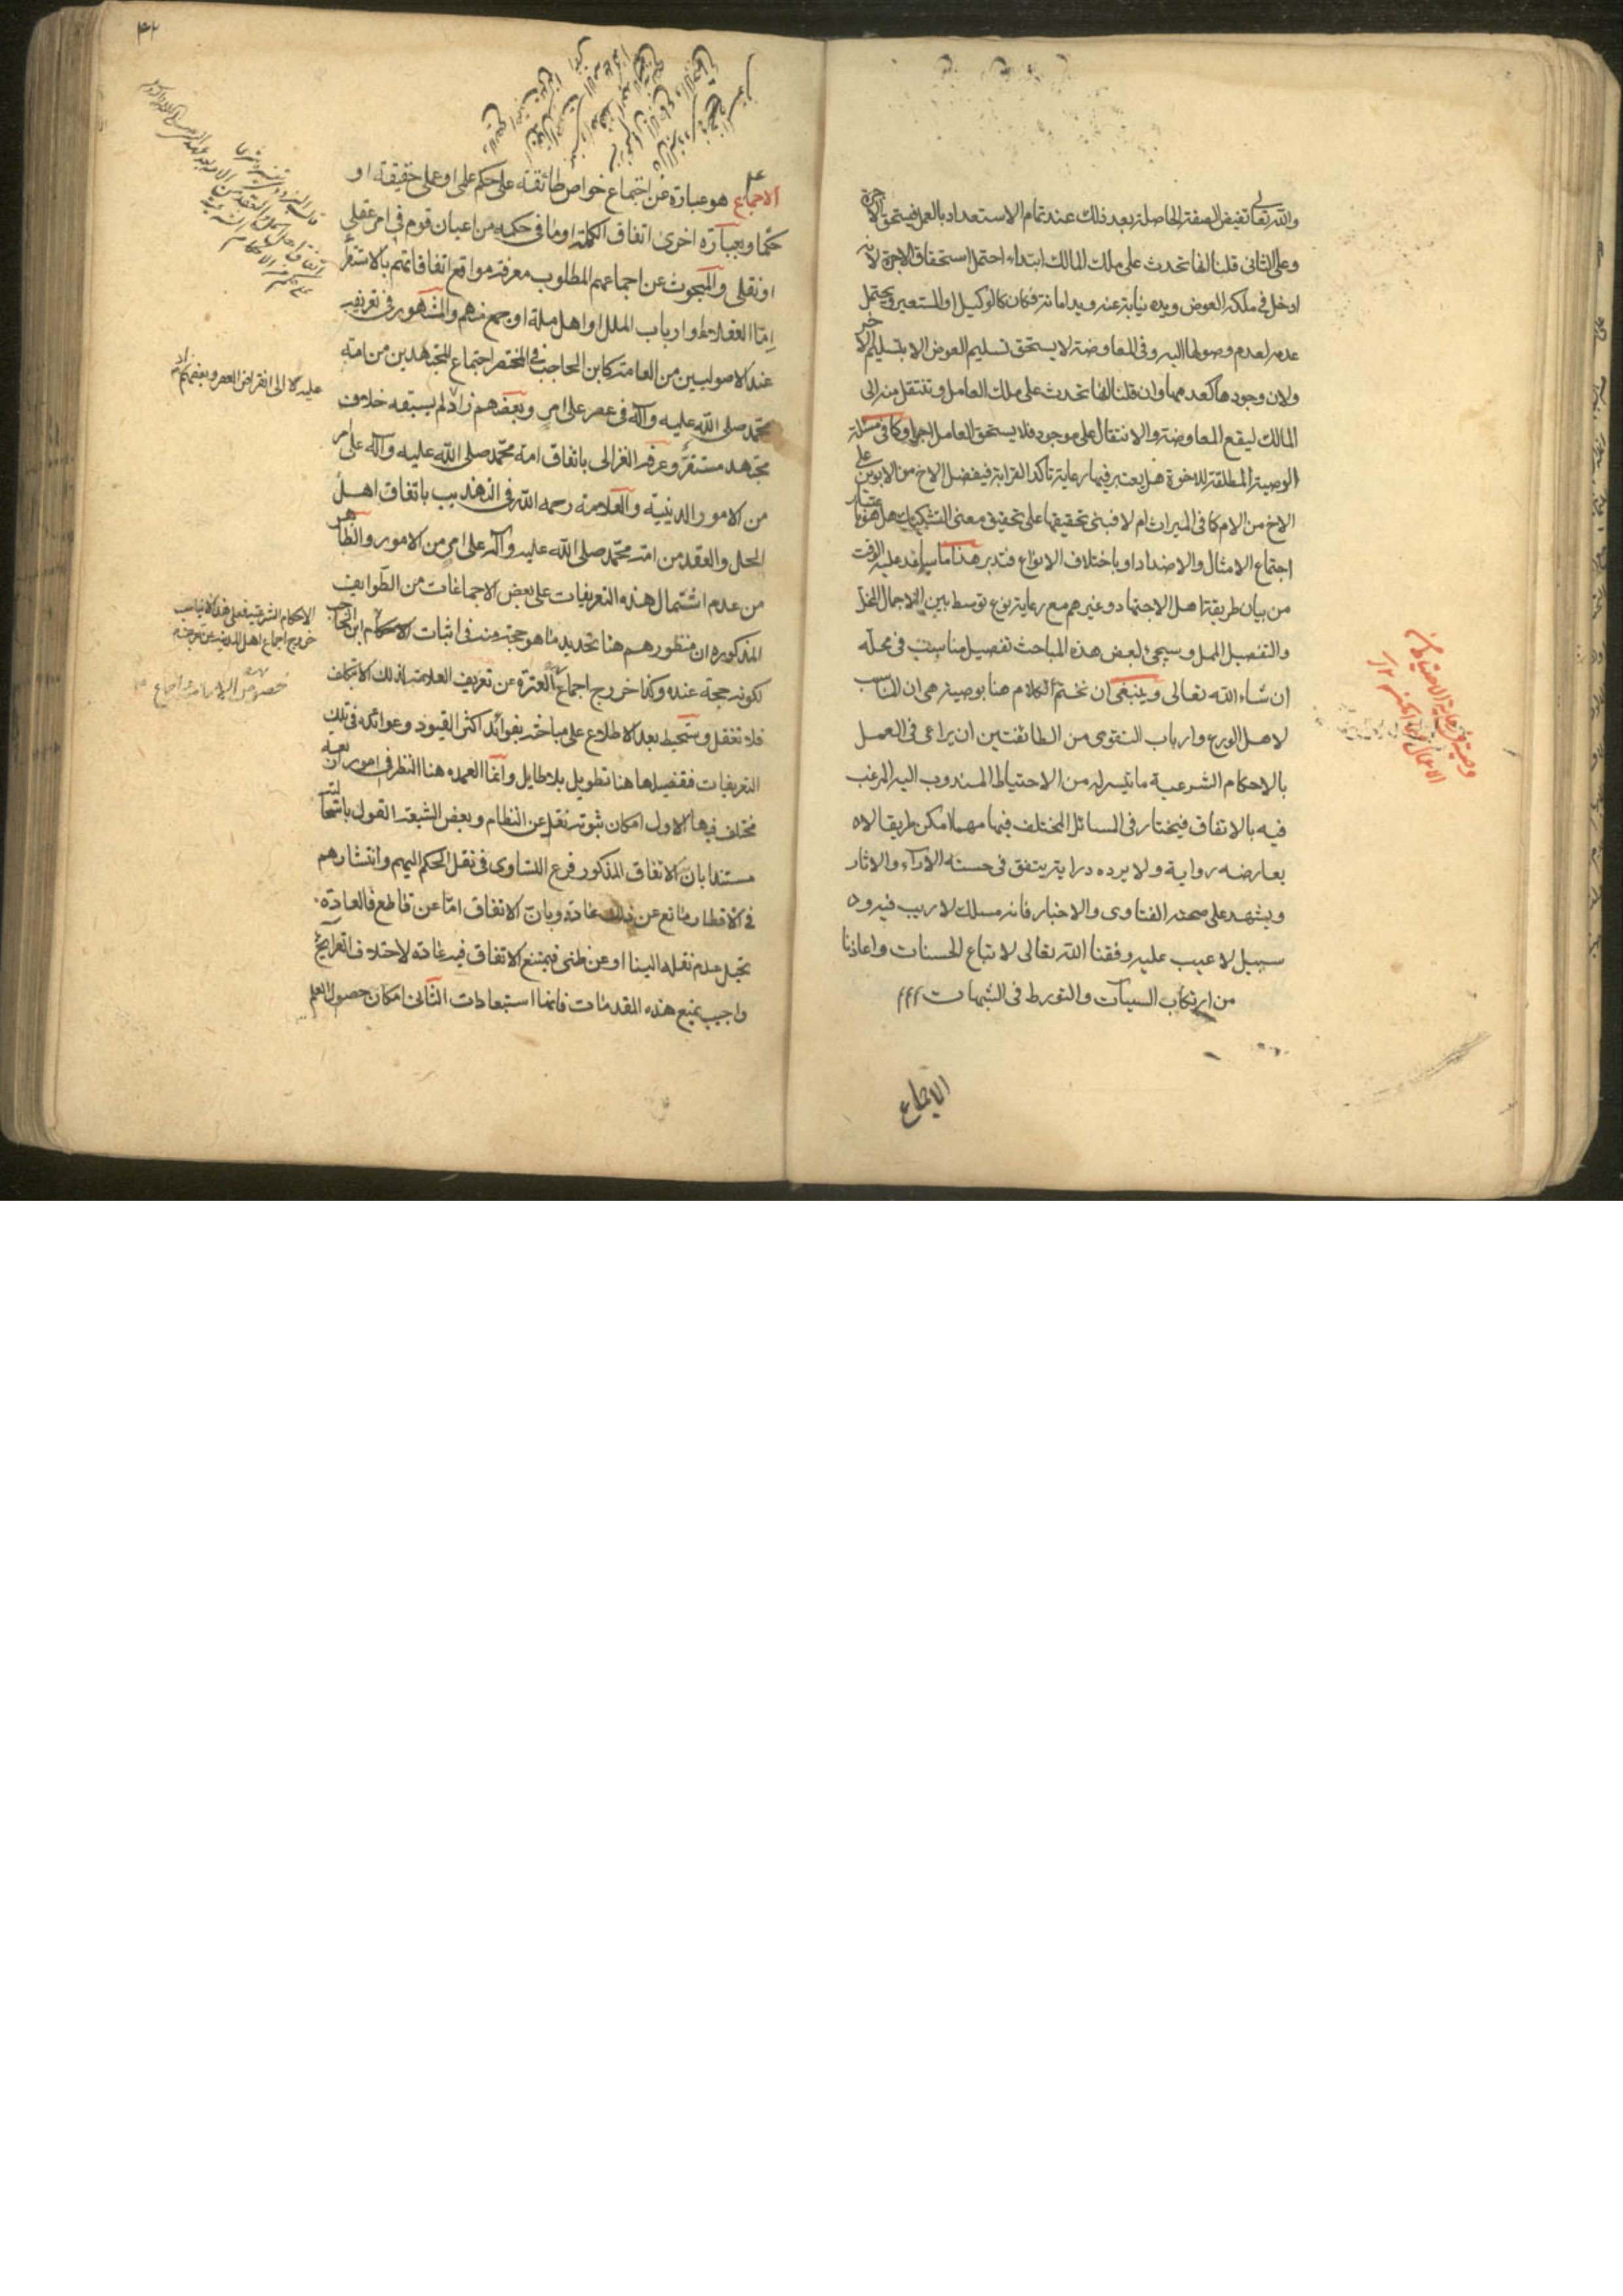 والله تعالى تفيض الصفة الحاصلة بعد ذلك عند تمام الاستعداد بالعمل فيستحق الاجرة
وعلى الثانى قلنا انها تحدث على ملك المالك ابتداء احتمل استحقاق الاجرة لانه
ادخل فى ملكه العوض ويده نيابة عنه ويد امانة فكان كالوكيل او المستعير ويحتمل
عدمه لعدم وصولها اليه وفى المعاوضة لا يستحق تسليم العوض الا بتسليم الاخر
ولان وجودها كعدمها وان قلنا انها تحدث على ملك العامل وتنتقل منه الى
المالك ليقع المعاوضة والانتقال على موجود فلا يستحق العامل اجرا وكما فى مسئلة
الوصية المطلقة للاخوة هل يعتبر فيها رعاية تاكد القرابة فيفضل الاخ من الابوين على
الاخ من الام كما فى الميراث ام لا فيبنى تحقيقها على تحقيق معنى التشكيك هل هو باعتبار
اجتماع الامثال والاضداد او باختلاف الانواع فتدبر هذا ما ساعد عليه الوقت
من بيان طريقة اهل الاجتهاد وغيرهم مع رعاية نوع توسط بين الاجمال المخل
والتفصيل الممل وسيجئ لبعض هذه المباحث تفصيل مناسب فى محله
ان شاء الله تعالى وينبغى ان نختم الكلام هنا بوصية هى ان المناسب
لاهل الورع وارباب التقوى من الطائفتين ان يراعى فى العمل
بالاحكام الشرعية ما تيسر له من الاحتياط المندوب اليه المرغب
فيه بالاتفاق فيختار فى المسائل المختلف فيها مهما امكن طريقا لا
يعارضه رواية ولا يرده دراية يتفق فى حسنه الآراء والاثار
ويشهد على صحته الفتاوى والاخبار فانه مسلك لا ريب فيه و
سبيل لا عيب عليه وفقنا الله تعالى لاتباع الحسنات واعاذنا
من ارتكاب السيآت والتورط فى الشبهات
الاجماع
وصية فى رعاية الاحتياط فى
الاعمال
٤٢
الاجماع هو عبارة عن اجتماع خواص طائفة على حكم علمى او على حقيقة او
حكما وبعبارة اخرى اتفاق الكلمة او ما فى حكمه من اعيان قوم فى امر عقلى
او نقلى والمبحوث عن اجماعهم المطلوب معرفة مواقع اتفاقاتهم بالاستقراء
اما العقلاء او ارباب الملل او اهل ملة او جمع منهم والمشهور فى تعريفه
عند الاصوليين من العامة كابن الحاجب فى المختصر اجتماع المجتهدين من امة
محمد صلى الله عليه وآله فى عصر على امر وبعضهم زاد لم يسبقه خلاف
مجتهد مستقر وعرفه الغزالى باتفاق امة محمد صلى الله عليه وآله على امر
من الامور الدينية والعلامة رحمه الله فى التهذيب باتفاق اهل
الحل والعقد من امة محمد صلى الله عليه وآله على امر من الامور والظاهر
من عدم اشتمال هذه التعريفات على بعض الاجماعات من الطوايف
المذكورة ان منظورهم هنا تحديد ما هو حجة منه فى اثبات ابن الحاجب
لكونه حجة عنده وكذا خروج اجماع العترة عن تعريف العلامة لذلك الا بتكلف
فلا تغفل وستحيط بعد الاطلاع على مباحثه بفوائد اكثر القيود وعوائده فى تلك
التعريفات فتفصيلها هنا تطويل بلا طايل وانما العمده هنا النظر فى امور اربعة
مختلف فيها الاول امكان ثبوته نقل عن النظام وبعض الشيعة القول باستحالته
مستندا بان الاتفاق المذكور فرع التساوى فى نقل الحكم اليهم وانتشارهم
فى الاقطار مانع عن ذلك عادة وبان الاتفاق اما عن قاطع فالعادة
تحيل عدم نقله الينا او عن ظنى فيمتنع الاتفاق فيه عادة لاختلاف القرايح
واجيب بمنع هذه المقدمات فانها استبعادات الثانى امكان حصول العلم
عليه الا الى انقراض العصر وبعضهم زاد
الاحكام الشرعية فعلى هذا لا يناسب
خروج اجماع اهل المدينة عن تعريف